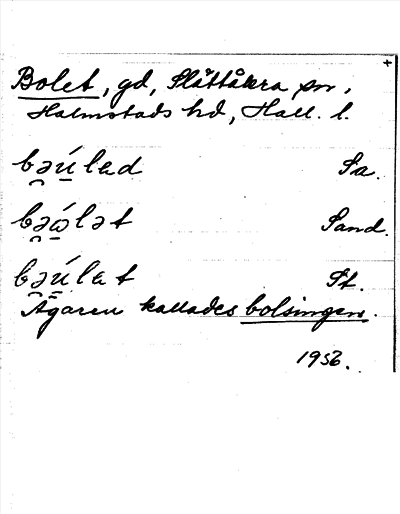 +
Bolet, gd, Slättåkra sn,
Halmstads hd, Hall. l.
bə̯ú̲lɛd Sa.
bə̯ώ̲lət Sand.
bə̯ú̲lɛt St.
Ägaren kallades bolsingen.
1956.